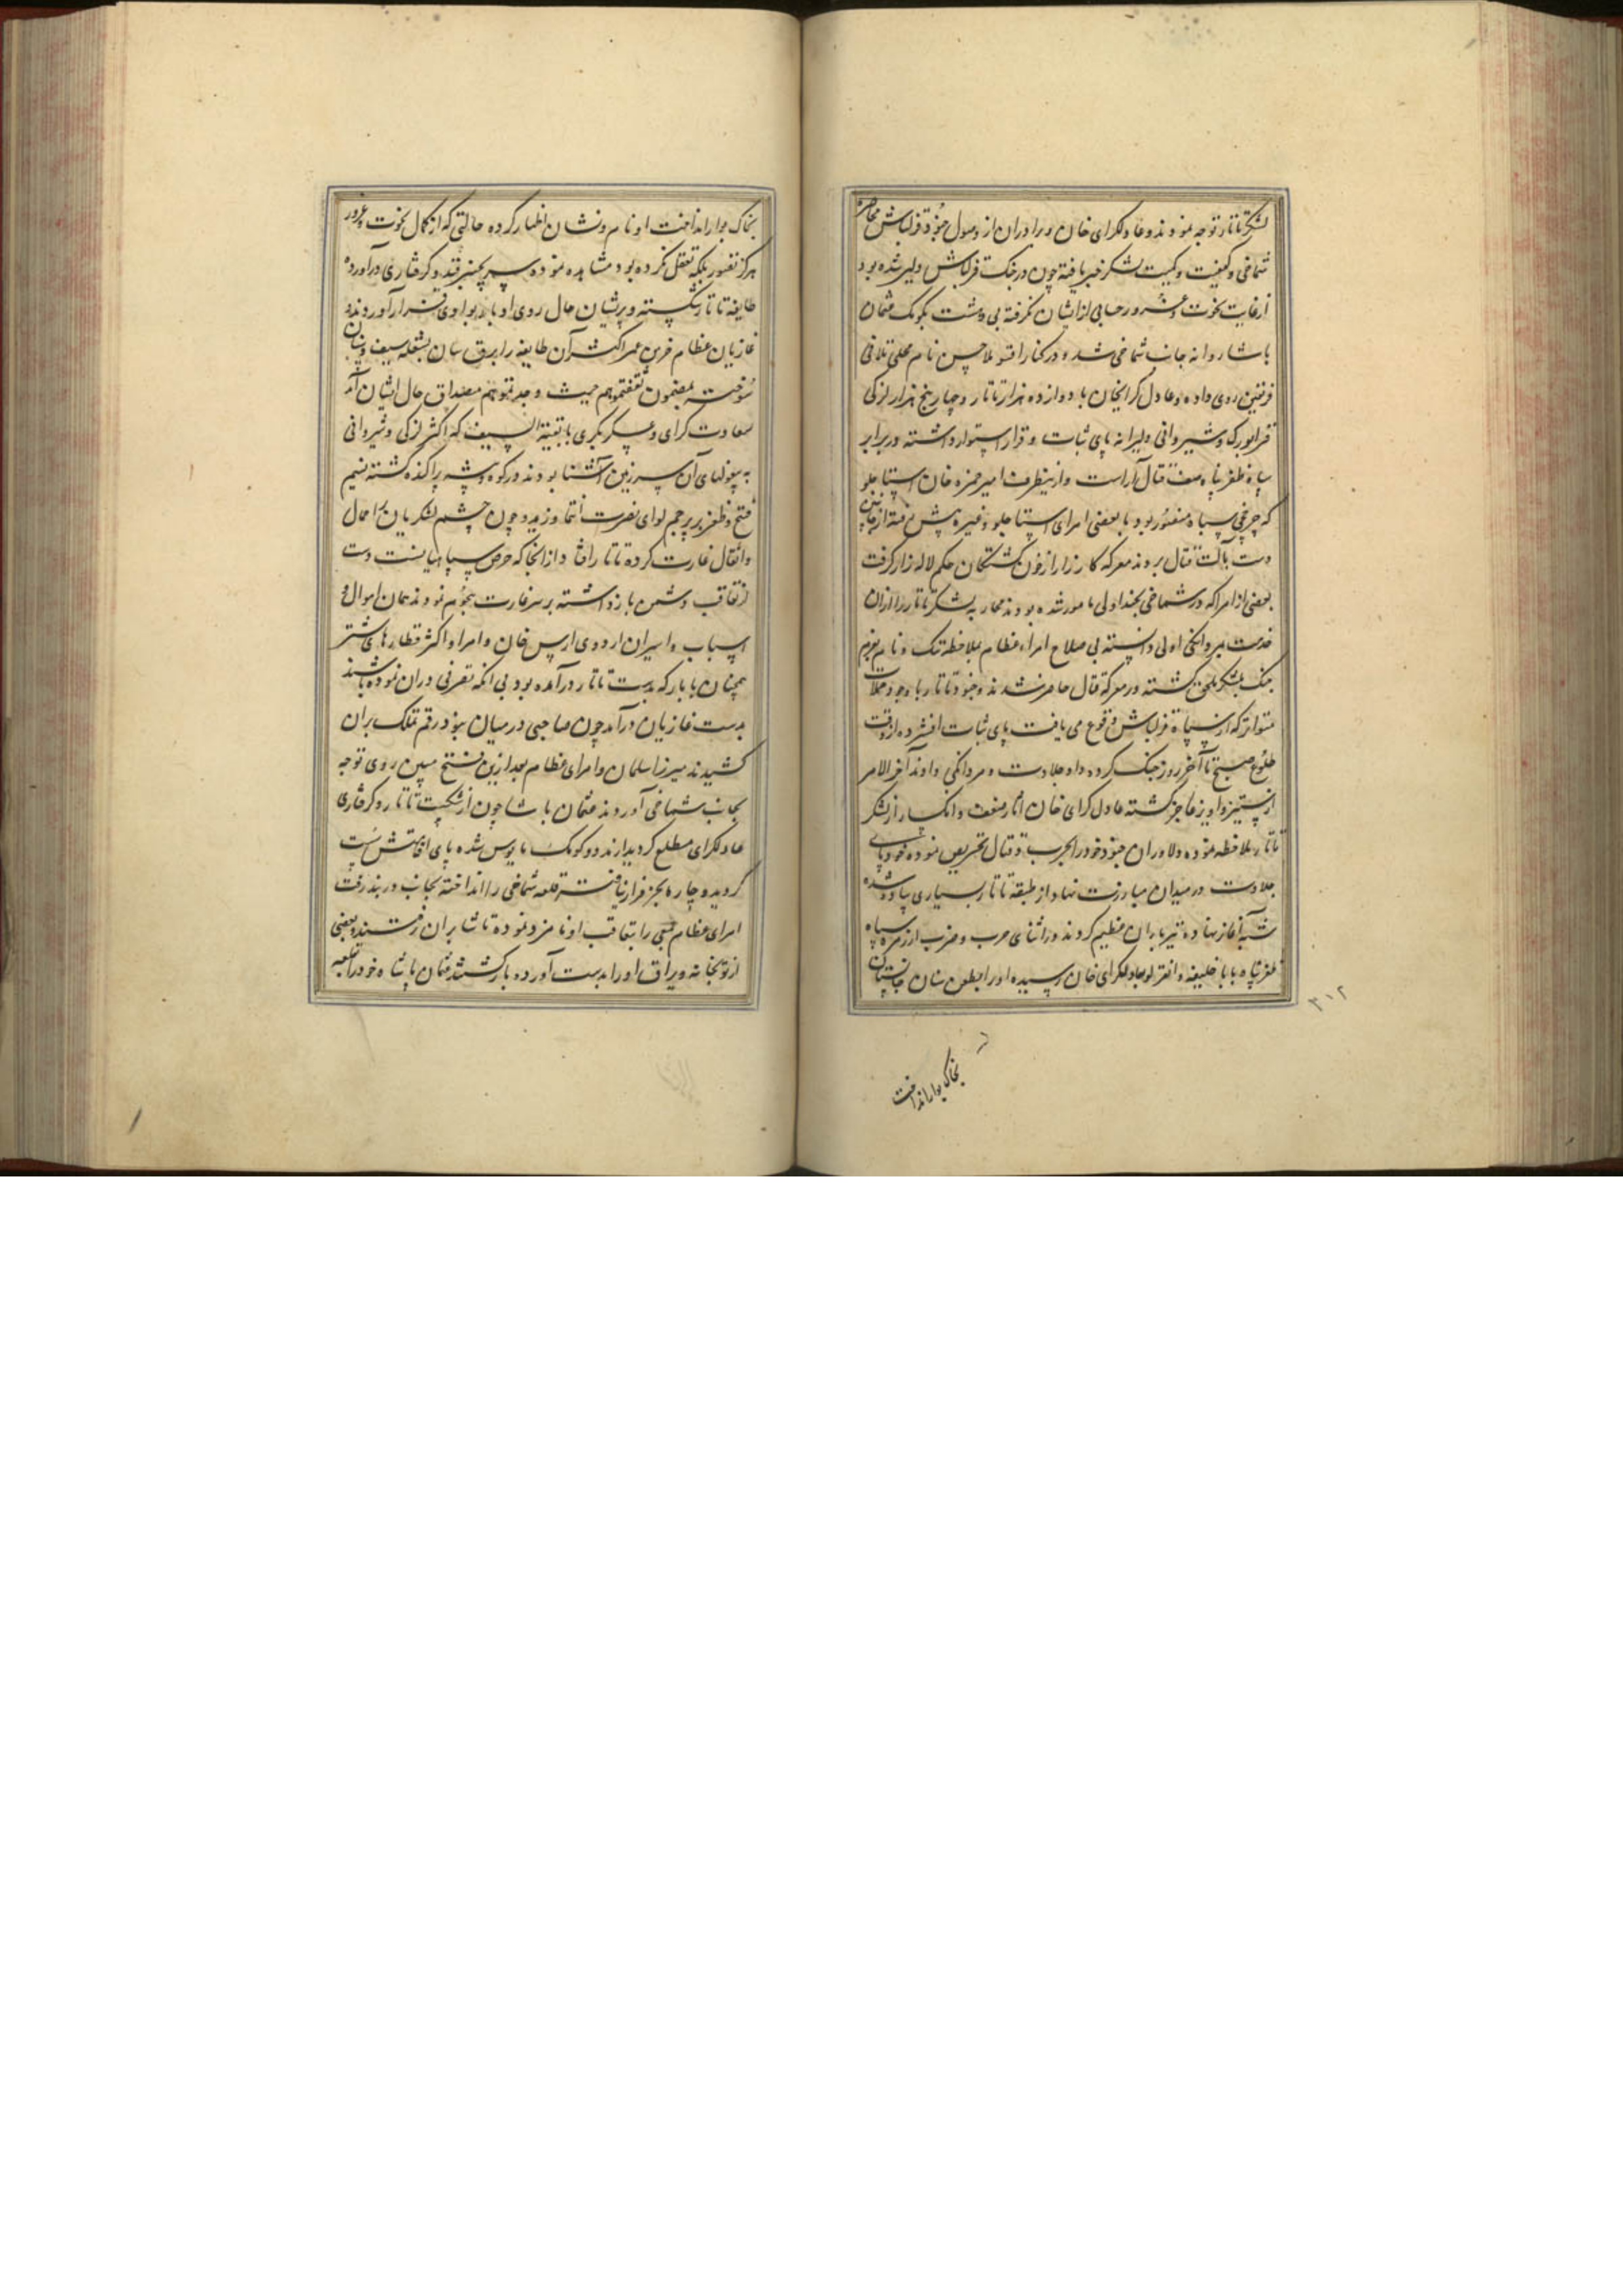 لشکر تاتار توجه نمودند و عادلکرای خان و برادران از وصول جنود قزلباش محاصره
شماخی و کیفیت و کمیت لشکر خبر یافته چون در جنک قزلباش دلیر شده بود
از غایت نخوت و غرور حسابی از ایشان نکرفته بی دهشت بکومک عثمان
پاشا روانه جانب شماخی شد و در کنار اقسو ملاحسن نام محلی تلاقی
فریقین روی داده و عادل کرایخان با دوازده هزار تاتار و چهار پنج هزار لزکی
قرابورک و شیروانی دلیرانه پای ثبات و قرار استوار داشته در برابر
سپاه ظفر پناه صف قتال آراست و ازینطرف امیر حمزه خان استاجلو
که چرخچی سپاه منصور بود با بعضی امرای استاجلو و غیره پیش رفته از جانبین
دست بآلت قتال بردند معرکه کارزار از خون کشتکان حکم لاله زار کرفت
بعضی از امرا که در شماخی بچنداولی مامور شده بودند محاربه لشکر تاتار را از آن
خدمت میر وانکی اولی دانسته بی صلاح امراء عظام بملاحظه ننک و نام بعزم
جنک بلشکر ملحق کشته در معرکه قتال حاضر شدند و جنود تاتار با وجود حملات
متواتر که از سپاه قزلباش وقوع می یافت پای ثبات افشرده از وقت
طلوع صبح تا آخر روز جنک کرده داد جلادت و مردانکی دادند آخر الامر
از ستیز و اویز عاجز کشته عادل کرای خان آثار ضعف و انکسار از لشکر
تاتار ملاحظه نموده دلاوران جنود خود را بحرب و قتال تحریص نموده خود پای
جلادت در میدان مبارزت نهاد از طبقه تاتار بسیاری پیاده شده
شیبه آغاز نهاده تیرباران عظیم کردند در اثنای حرب و ضرب از زمره سپاه
ظفر پناه بابا خلیفه دانقرلو بعادلکرای خان رسیده او را بطعن سنان جانستان
۳۱۲
بخاک بوار انداخت
بخاک بوار انداخت او نام و نشان اظهار کرده حالتی که از کمال نخوت و غرور
هرکز تصور بلکه تعقل نکرده بود مشاهده نموده سر بچنبر قید و کرفتاری درآورده
طایفه تاتار شکسته و پریشان حال روی ادبار بوادی فرار آوردند
غازیان عظام اکثر آن طایفه را برق سان بشعله سیف و سنان
سوخته بمضمون ثقفتموهم حیث وجدتموهم مصداق حال ایشان آمد
سعادت کرای و عسکر بکری با بقیة السیف که اکثر لزکی و شیروانی
به بیغولهای آن سرزمین آشنا بودند در کوه و بیشه پراکنده کشته نسیم
فتح و ظفر بر پرچم لوای نصرت انتما وزید و چون چشم لشکریان بر احمال
و اثقال غارت کرده تاتار افتاد از آنجا که حرص سپاهیانست دست
از تعاقب دشمن باز داشته بر سر غارت هجوم نمودند همان اموال و
اسباب و اسیران اردوی ارس خان و امرا و اکثر قطارهای شتر
همچنان با بار که بدست تاتار درآمده بود بی آنکه تصرفی در آن نموده باشند
بدست غازیان درآمد چون صاحبی در میان نبود رقم تملک بر آن
کشیدند میرزا سلمان و امرای عظام بعد ازین فتح مبین روی توجه
بجانب شماخی آوردند عثمان پاشا چون از شکست تاتار و کرفتاری
عادلکرای مطلع کردید از مدد و کومک مایوس شده پای اقامتش سست
کردید و چاره بجز فرار نیافته قلعه شماخی را انداخته بجانب دربند رفت
امرای عظام جمعی را بتعاقب او نامزد نموده تا شابران رفتند و بعضی
از توپخانه و یراق او را بدست آورده باز کشتند عثمان پاشاه خود را بقلعه